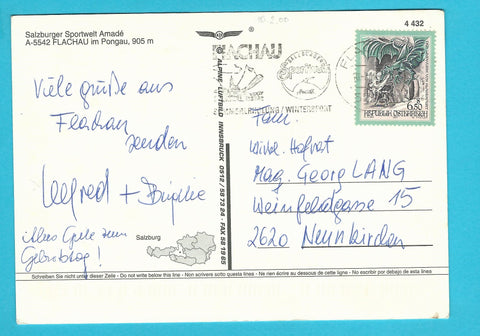 10.2.00
Salzburger Sportwelt Amadé
A-5542 FLACHAU im Pongau, 905 m
4 432
FLACHAU
6.50
REPUBLIK ÖSTERREICH
ERHOLUNG / WINTERSPORT
Viele Grüße aus
Flachau
senden
+ Brigitte
Alles Gute zum
Geburtstag!
Fam.
Wirkl. Hofrat
Mag. Georg LANG
Weinfeldgasse 15
2620 Neunkirchen
ALPINE-LUFTBILD INNSBRUCK 0512/58 73 24 - FAX 58 19 65
Salzburg
Schreiben Sie bitte nicht unter diese Linie - Do not write below this line - Non scrivere sotto questa linea - Ne rien écrire au dessous de cette ligne - No escribir por debajo de esta line